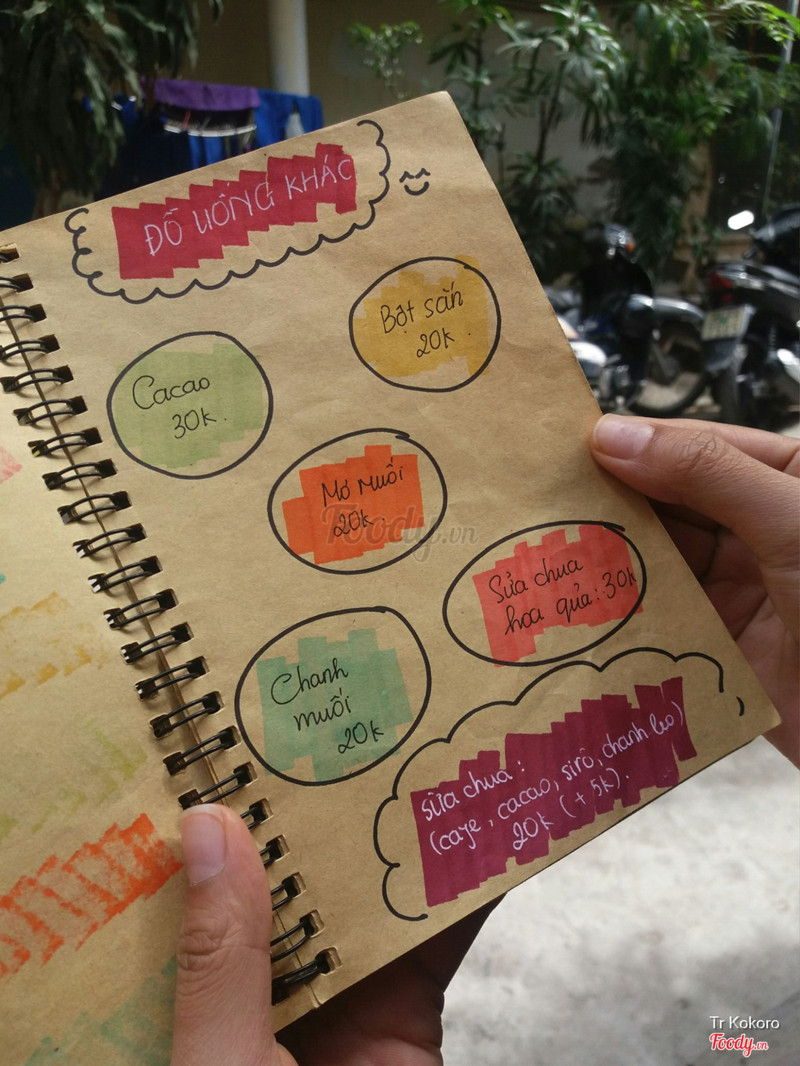 ĐỒ UỐNG KHÁC
Bột sắn
20k.
Cacao
30k.
Mơ muối
20k.
Foody.vn
Sữa chua
hoa quả: 30k
Chanh
muối
20k
Sữa chua:
(cafe, cacao, sirô, chanh leo)
20k (+5k).
Tr Kokoro
Foody.vn